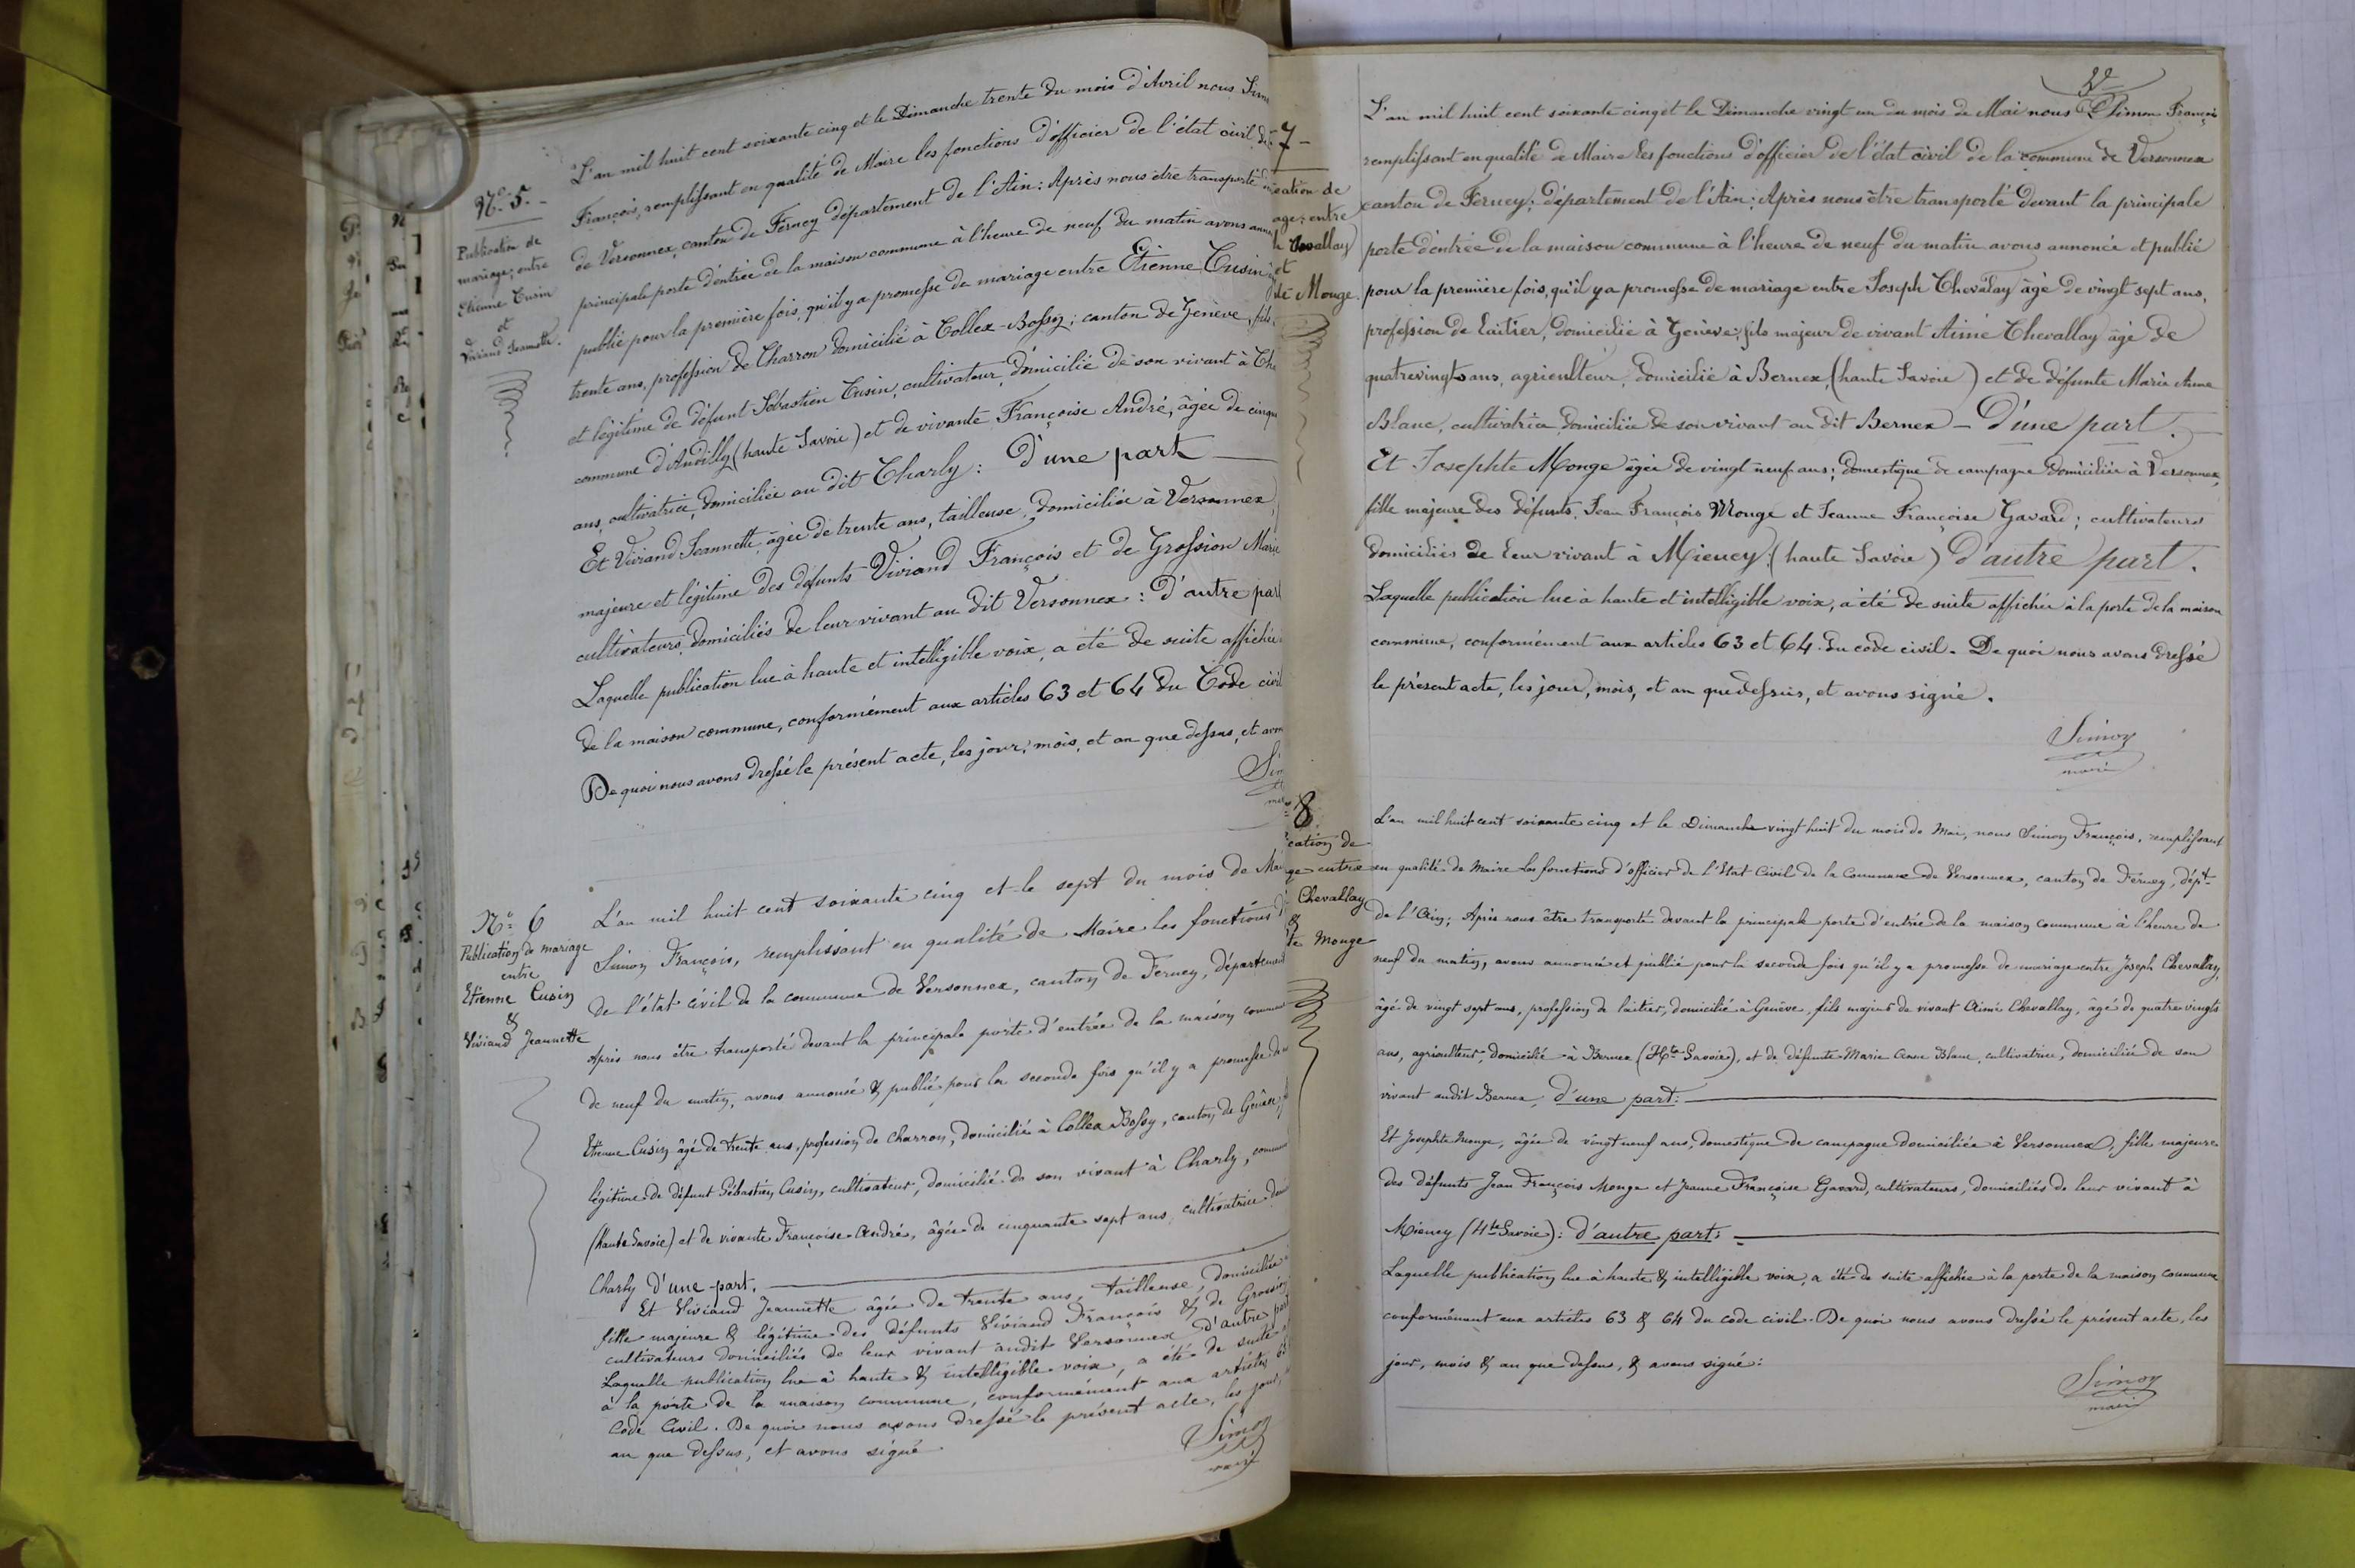 N.° 5.
Publication de
mariage; entre
Etienne Cusin
et
Viviand Jeannette.
L'an mil huit cent soixante cinq et le Dimanche trente du mois d'Avril nous Sim
François, remplissant en qualité de Maire les fonctions d'officier de l'état civil de
de Versonnex, canton de Ferney département de l'Ain: Après nous être transporté
principale porte d'entrée de la maison commune à l'heure de neuf du matin avons ann
publié pour la première fois, qu'il y a promesse de mariage entre Etienne Cusin
trente ans, profession de Charron domicilié à Collex-Bossy; canton de Genève, fils
et légitime de défunt Sébastien Cusin, cultivateur, domicilié de son vivant à Ch
commune d'Andilly (haute Savoie) et de vivante Françoise André, âgée de cinqu
ans, cultivatrice, domiciliée au dit Charly: D'une part
Et Viviand Jeannette, âgée de trente ans, tailleuse, domiciliée à Versonnex,
majeure et légitime des défunts Viviand François et de Grossion Marie
cultivateurs, domiciliés de leur vivant au dit Versonnex: D'autre part
Laquelle publication lue à haute et intelligible voix, a été de suite affichée
de la maison commune, conformément aux articles 63 et 64 du Code civil
De quoi nous avons dressé le présent acte, les jour, mois, et an que dessus, et avon
Sim
N° 6
Publication de mariage
entre
Etienne Cusin
&
Viviand Jeannette
L'an mil huit cent soixante cinq et le sept du mois de Mai
Simon François, remplissant en qualité de Maire les fonctions d'
de l'état civil de la commune de Versonnex, canton de Ferney, département
Après nous être transporté devant la principale porte d'entrée de la maison commune
de neuf du matin, avons annoncé & publié pour la seconde fois qu'il y a promesse de
Etienne Cusin âgé de trente ans, profession de charron, domicilié à Collex Bossy, canton de Genève,
légitime de défunt Sébastien Cusin, cultivateur, domicilié de son vivant à Charly, commun
(Haute Savoie) et de vivante Françoise André, âgée de cinquante sept ans, cultivatrice dom
Charly d'une part.
Et Viviand Jeannette âgée de trente ans, tailleuse, domiciliée
fille majeure & légitime des défunts Viviand François & de Grossion
cultivateurs domiciliés de leur vivant audit Versonnex d'autre part
Laquelle publication lue à haute & intelligible voix, a été de suite
à la porte de la maison commune, conformément aux articles 63
Code Civil. De quoi nous avons dressé le présent acte, les jour,
an que dessus, et avons signé
Simon
maire
7
cation de
age; entre
h Chevallay
et
te Monge.
L'an mil huit cent soixante cinq et le Dimanche vingt un du mois de Mai nous Simon François
remplissant en qualité de Maire les fonctions d'officier de l'état civil de la commune de Versonnex
canton de Ferney; département de l'Ain; Après nous être transporté devant la principale
porte d'entrée de la maison commune à l'heure de neuf du matin avons annoncé et publié
pour la première fois, qu'il y a promesse de mariage entre Joseph Chevalay âgé de vingt sept ans,
profession de Laitier, domicilié à Genève; fils majeur de vivant Aimé Chevallay âgé de
quatrevingts ans, agriculteur, domicilié à Bernex, (haute Savoie) et de défunte Marie Anne
Blanc, cultivatrice domiciliée de son vivant au dit Bernex - D'une part.
Et Josephte Monge âgée de vingt-neuf ans; domestique de campagne domiciliée à Versonnex,
fille majeure des défunts, Jean François Monge et Jeanne Françoise Gavard; cultivateurs
domiciliés de leur vivant à Mieucy; (haute Savoie) D'autre part.
Laquelle publication lue à haute et intelligible voix, a été de suite affichée à la porte de la maison
commune, conformément aux articles 63 et 64 du code civil. De quoi nous avons dressé
le présent acte, les jour, mois, et an que dessus, et avons signé.
Simon
maire
8
cation de
ge entre
Chevallay
&
te Monge
L'an mil huit cent soixante cinq et le Dimanche vingt huit du mois de Mai, nous Simon François, remplissant
en qualité de Maire les fonctions d'officier de l'Etat Civil de la Commune de Versonnex, canton de Ferney, dépt
de l'Ain; Après nous être transporté devant la principale porte d'entrée de la maison commune à l'heure de
neuf du matin, avons annoncé et publié pour la seconde fois qu'il y a promesse de mariage entre Joseph Chevallay,
âgé de vingt sept ans, profession de laitier, domicilié à Genève, fils majeur de vivant Aimé Chevallay, âgé de quatre vingts
ans, agriculteur, domicilié à Bernex (Hte Savoie), et de défunte Marie Anne Blanc, cultivatrice, domiciliée de son
vivant audit Bernex, d'une part:
Et Josephte Monge, âgée de vingt neuf ans, domestique de campagne domiciliée à Versonnex, fille majeure
des défunts Jean François Monge et Jeanne Françoise Gavard, cultivateurs, domiciliés de leur vivant à
Mieucy (Hte Savoie): d'autre part:
Laquelle publication lue à haute & intelligible voix, a été de suite affichée à la porte de la maison commune
conformément aux articles 63 & 64 du code civil. De quoi nous avons dressé le présent acte, les
jour, mois & an que dessus, & avons signé:
Simon
maire